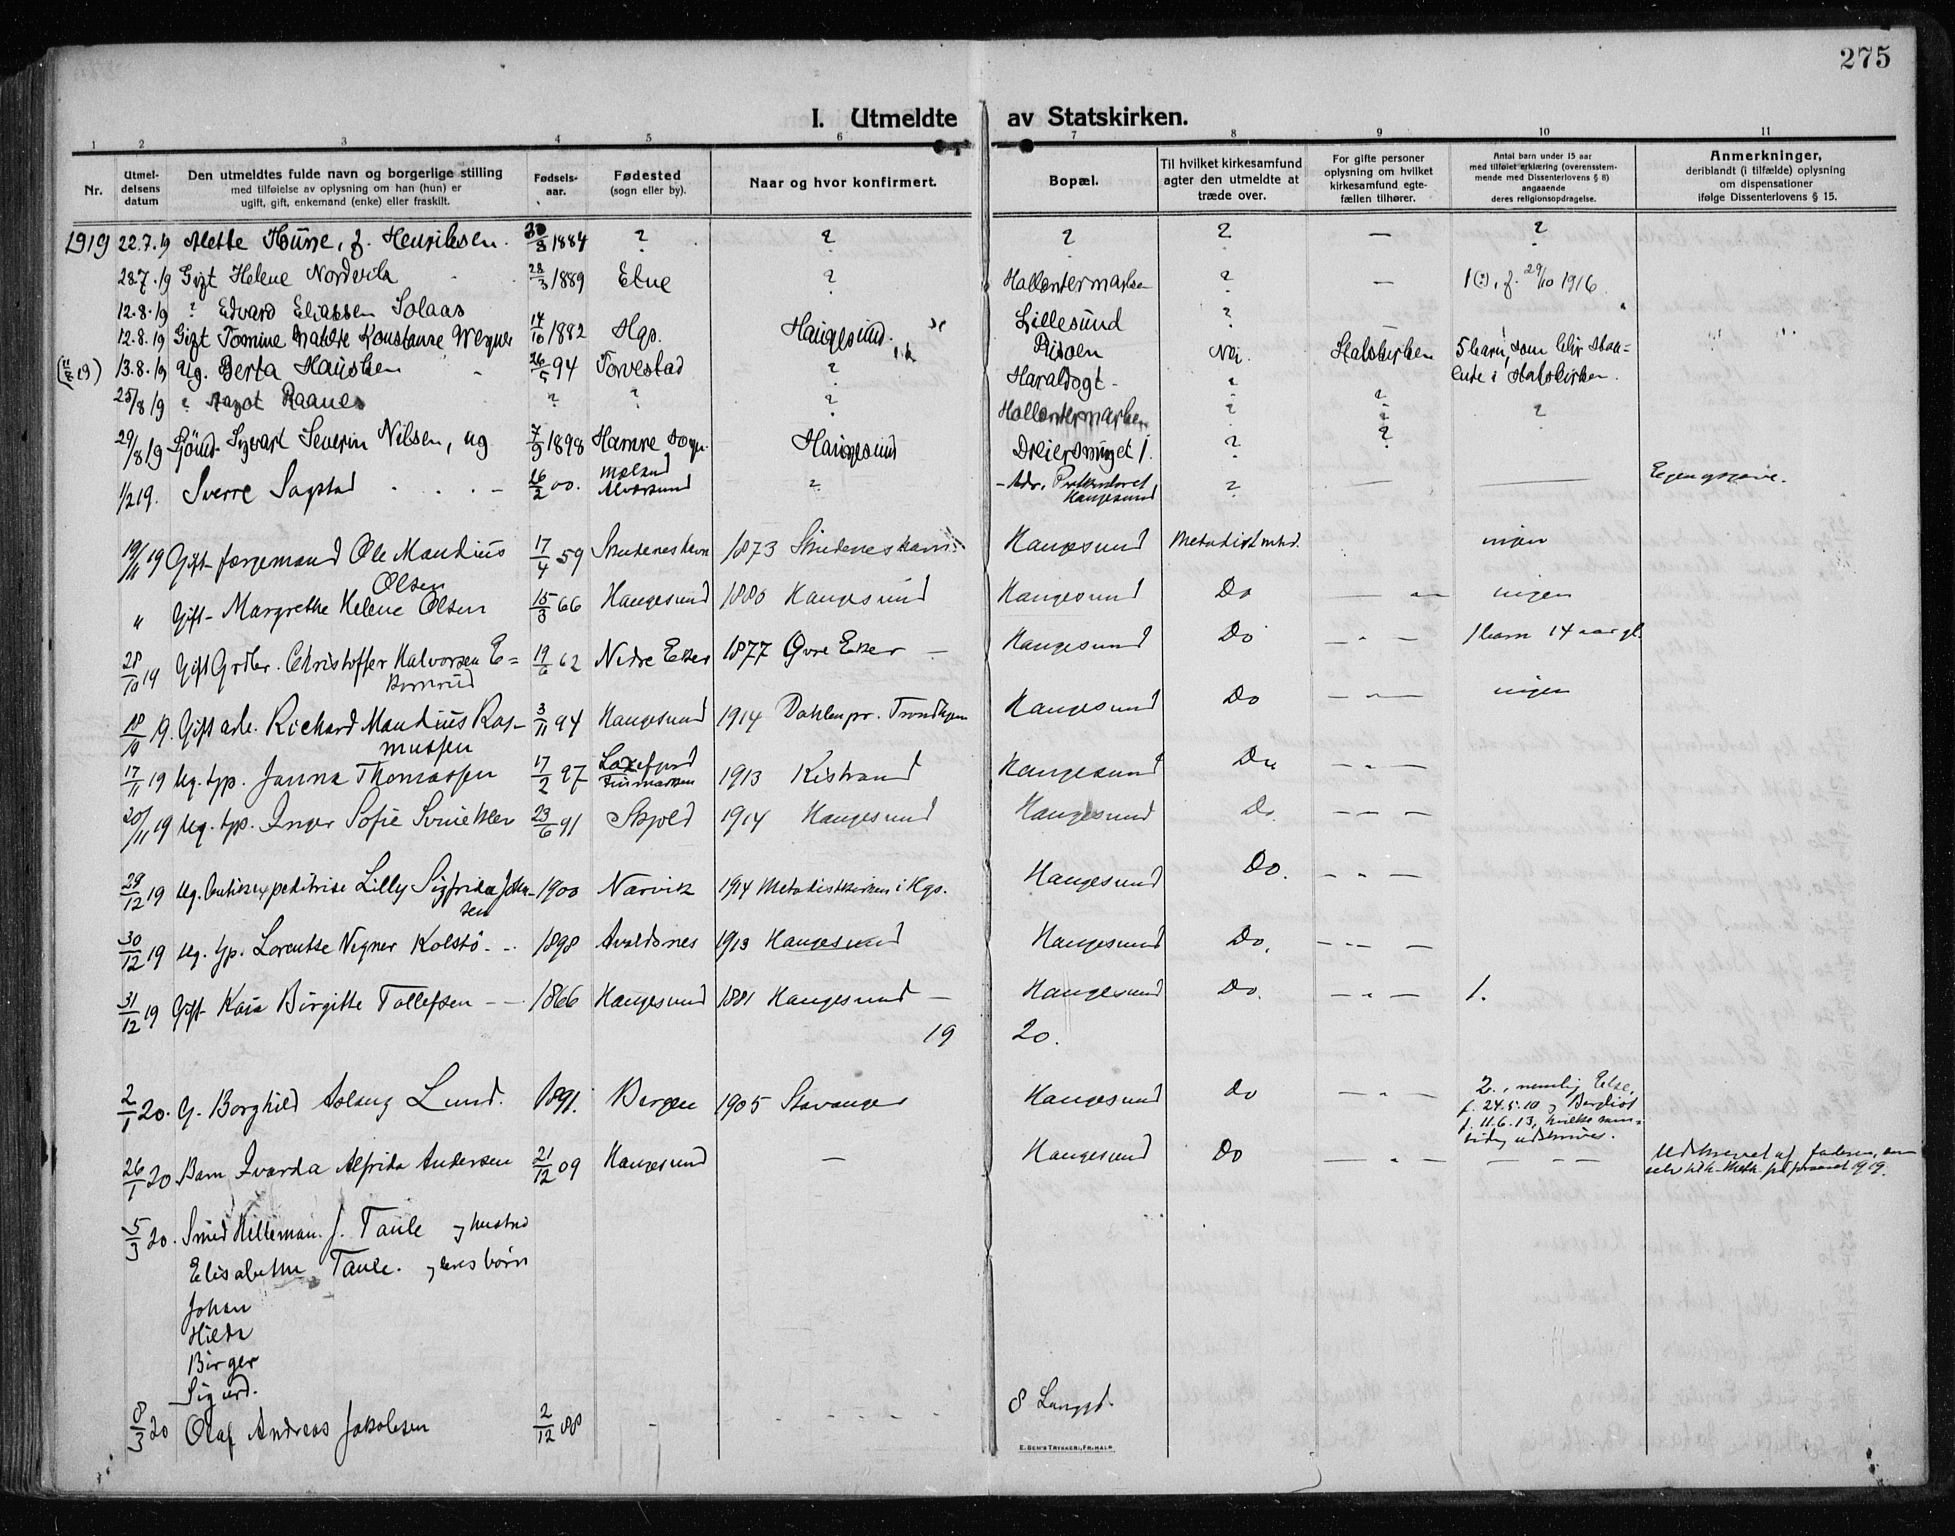 275
I. Utmeldte av Statskirken.
1 2 3 4 5 6 7 8 9 10 11
Nr.
Utmel-
delsens
datum
Den utmeldtes fulde navn og borgerlige stilling
med tilføielse av oplysning om han (hun) er
ugift, gift, enkemand (enke) eller fraskilt.
Fødsels-
aar.
Fødested
(sogn eller by).
Naar og hvor konfirmert.
Bopæl.
Til hvilket kirkesamfund
agter den utmeldte at
træde over.
For gifte personer
oplysning om hvilket
kirkesamfund egte-
fællen tilhører.
Antal barn under 15 aar
med tilføiet erklæring (overensstem-
mende med Dissenterlovens § 8)
angaaende
deres religionsopdragelse.
Anmerkninger,
deriblandt (i tilfælde) oplysning
om dispensationer
ifølge Dissenterlovens § 15.
1919 22.7.19 Alette, f. Henriksen. 30/3 1884 ? ? ? ? — ?
28.7.19 Gift Helene Nordvik 28/3 1889 Etne ? ? — 1, f. 29/10 1916.
12.8.19 ? Edvard Eliassen Solaas Lillesund ?
12.8.19 Gift Tomine Konstanse 14/10 1882 Hgs. Haugesund. Risøen Nei Statskirken 5 barn, som blir staa-
ende i Statskirken.
13.8.19 Ug. Berta Hausken 26/5 94 Torvestad ? Haraldsgt. ?
25/8 19 ? Aagot Raanes ? ? ? ? ? ?
29/8 19 Sjømd. Sigvart Severin Nilsen, ug 7/9 1898 Hamre Sogn. Haugesund 1. ? ?
1/2 19. Sverre Sagstad 26/2 00. Alversund ? Adr. Haugesund ? — —
19/11 19 Gift Ole Maudius
Olsen 17/4 59 Skudeneshavn 1873 Skudeneshavn Haugesund Metodistmhd. ingen
" Gift Margrethe Helene Olsen 15/3 66 Haugesund 1880 Haugesund Haugesund Do — " — ingen
28/10 19 Gift Christoffer Halvorsen E=
19/6 62 Nedre Eker 1877 Øvre Eker — Haugesund Do — " — 1 barn 14 aar gl.
18/10 19. Gift arb. Richard Maudius Ras-
mussen 3/11 94 Haugesund 1914 Trondhjem Haugesund Do — " — ingen
17/11 19 Ug. tjp. Janna Thomassen 17/2 97 Laxefjord
Finmarken 1913 Kistrand Haugesund Do — " —
20/11 19 Ug. tjp. Inger Sofie 23/6 91 Skjold 1914 Haugesund Haugesund Do. — — —
29/12 19 Ug. Lilly Sigfrida Johan-
sen 1900 Narvik 1914 Metodistkirken i Hgs. Haugesund Do. — " —
30/12 19 Ug. tjp. Lorentse Vigner Kolstø 1898 Avaldsnes 1913 Haugesund Haugesund Do. — — —
31/12 19 Gift Kaia Birgitte Tollefsen 1866 Haugesund 1881 Haugesund — Haugesund Do. — " — 1.
19 20.
2/1 20. G. Borghild Aslaug Lund. 1891. Bergen 1905 Stavanger Haugesund Do — " — 2., nemlig Else,
f. 24.5.10 og Bergliot
f. 11.6.13, hvilke sam-
tidig udskrives.
26/1 20 Barn Ivarda Alfrida Andersen 21/12 09 Haugesund — Haugesund Do — " — — — — Udskrevet af faderen, som
1919.
5/3 20. Smed J. Taule og hustru
Elisabetha Taule. og deres børn
Johan
Hilda
Birger
Sigurd.
8/3 20 Olaf Andreas Jakobsen 2/12 88 - 8 Langgt.
E. SEM'S TRYKKERI, FR.HALD